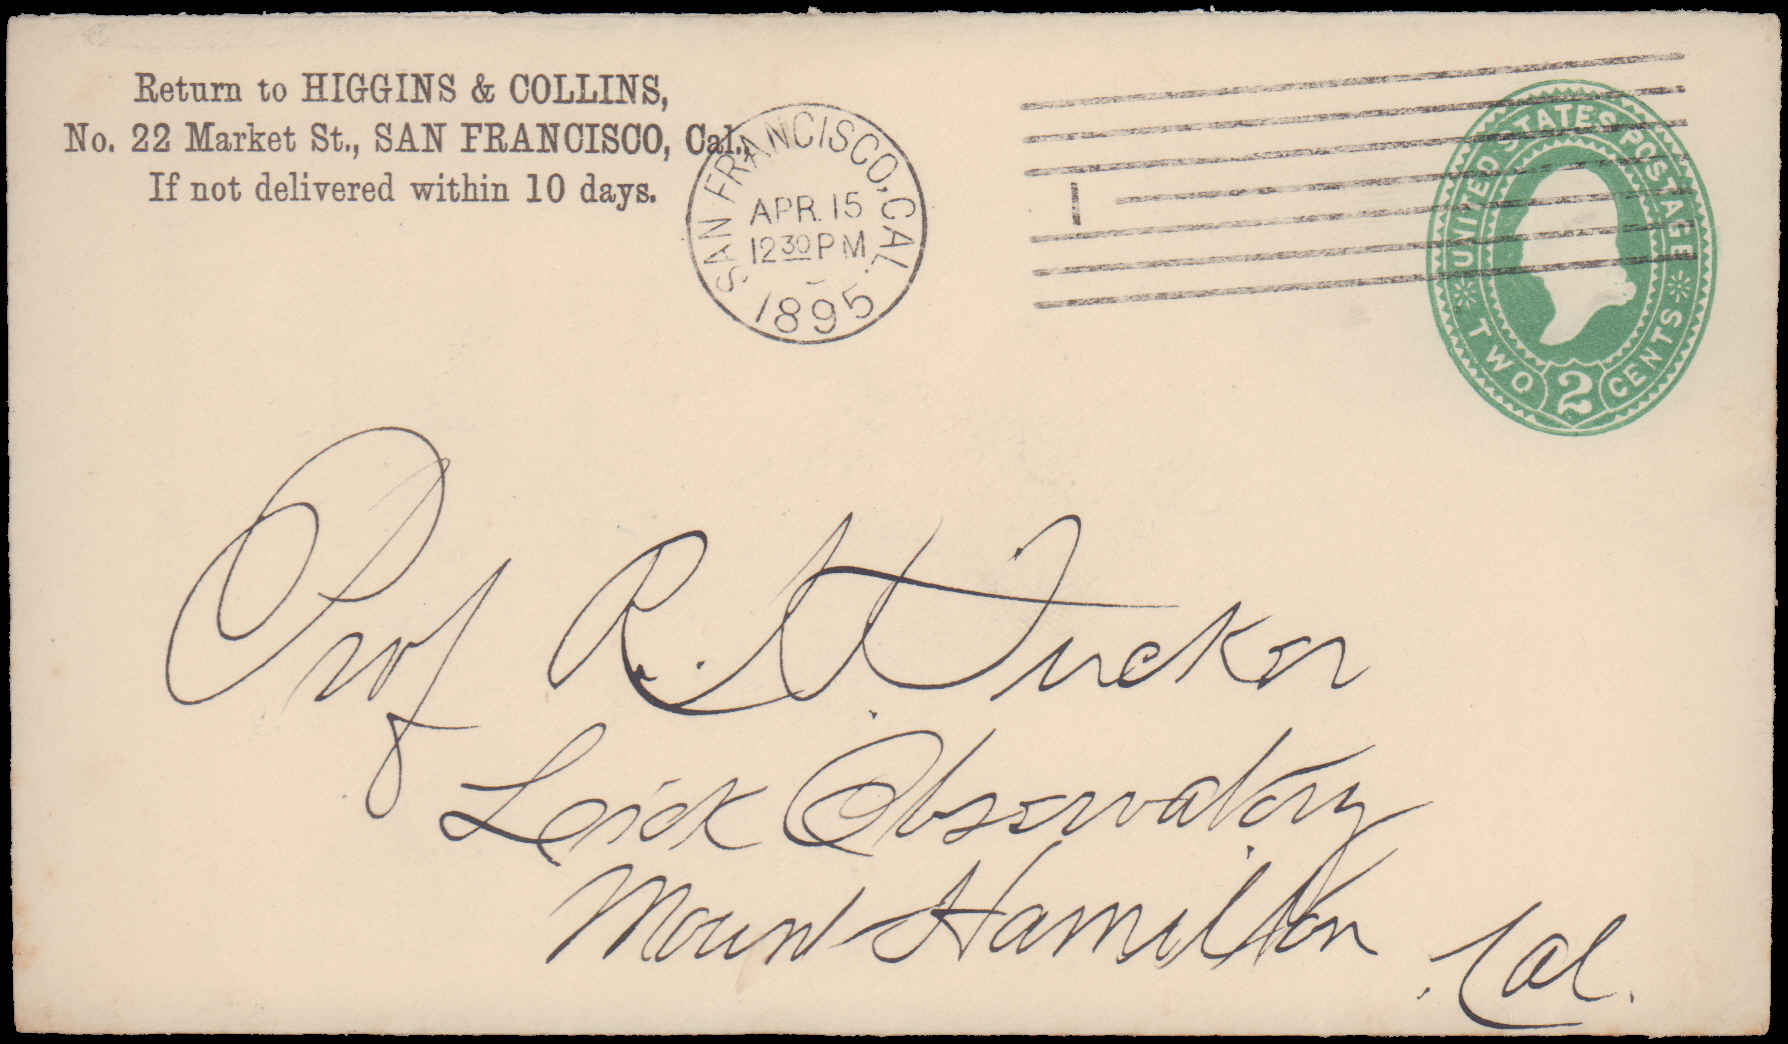 Return to HIGGINS & COLLINS,
No. 22 Market St., SAN FRANCISCO, Cal.,
If not delivered within 10 days.
SAN FRANCISCO, CAL.
APR. 15
12 30 PM
1895
1
UNITED STATES POSTAGE
TWO 2 CENTS
Prof R. H. Tucker
Leick Observatory
Mount Hamilton
Cal.